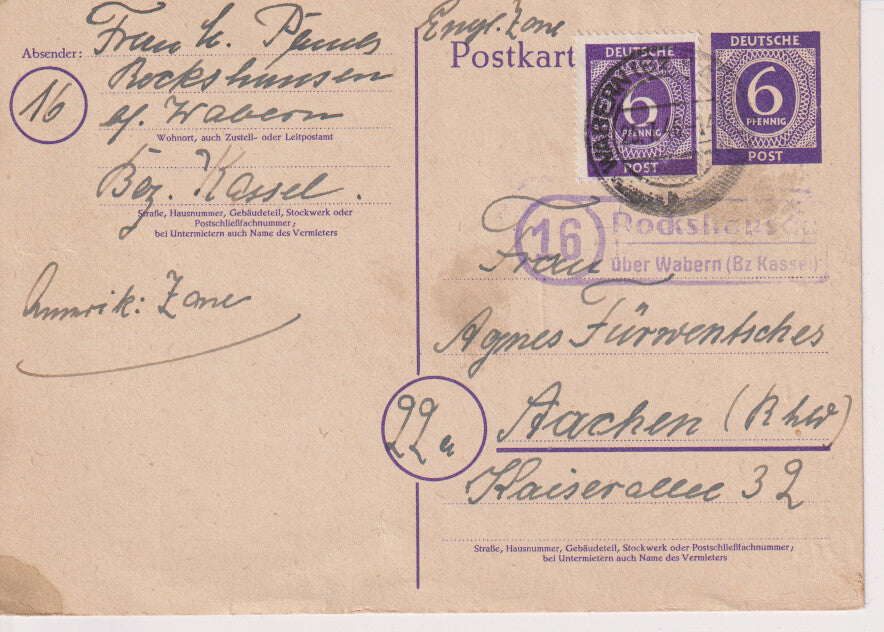 Absender: Frau
Rockshausen
16
b/. Wabern
Wohnort, auch Zustell- oder Leitpostamt
Bez. Kassel.
Straße, Hausnummer, Gebäudeteil, Stockwerk oder
Postschließfachnummer;
bei Untermietern auch Name des Vermieters
Amerik: Zone
Engl. Zone
Postkart
DEUTSCHE
6
PFENNIG
POST
DEUTSCHE
6
PFENNIG
POST
WABERN
16
Rockshausen
über Wabern (Bz Kassel)
Frau
Agnes Fürwentsches
22a
Aachen (Rhld)
Kaiserallee 32
Straße, Hausnummer, Gebäudeteil, Stockwerk oder Postschließfachnummer;
bei Untermietern auch Name des Vermieters